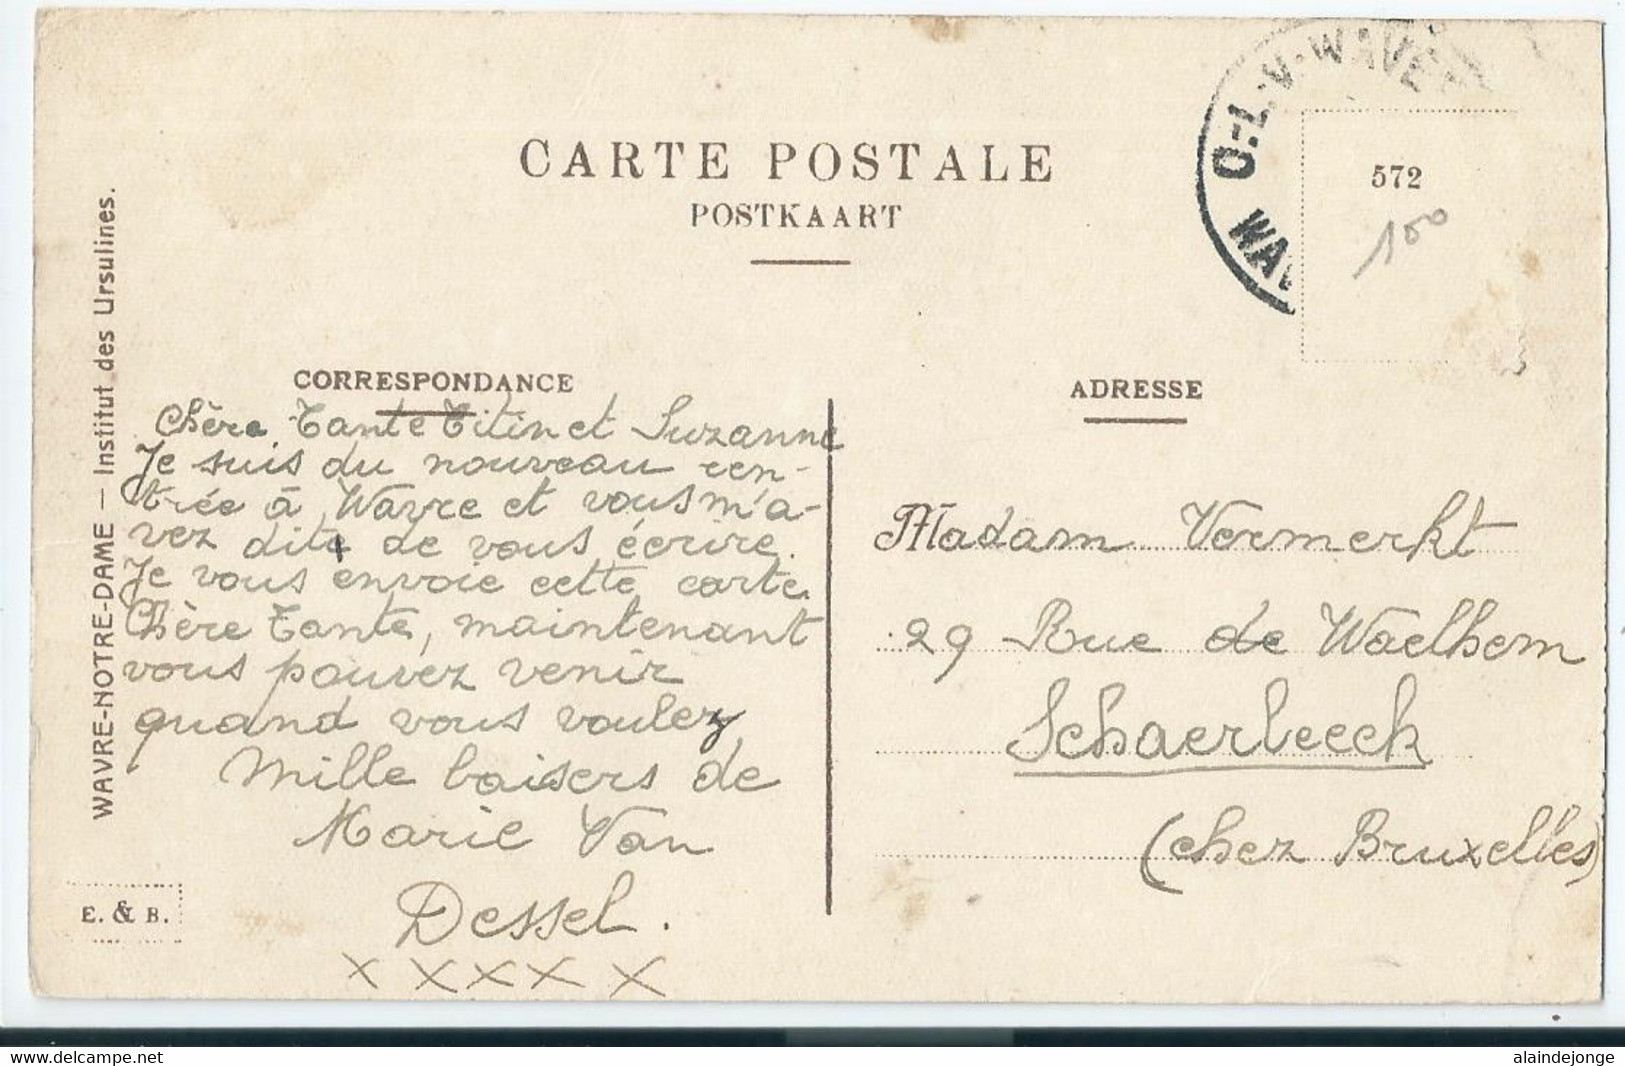 CARTE POSTALE
POSTKAART
O.-L.-V.-WAVE
WAV
572
100
WAVRE-NOTRE-DAME — Institut des Ursulines.
CORRESPONDANCE
Chère Tante Titin et Suzanne
Je suis du nouveau ren-
trée à Wavre et vous m'a-
vez dite de vous écrire.
Je vous envoie cette carte.
Chère Tante, maintenant
vous pouvez venir
quand vous voulez
Mille baisers de
Marie Van
Dessel.
x x x x x
E. & B.
ADRESSE
Madam Vermerkt
29 Rue de Waelhem
Schaerbeeck
(chez Bruxelles)
delcampe.net
alaindejonge